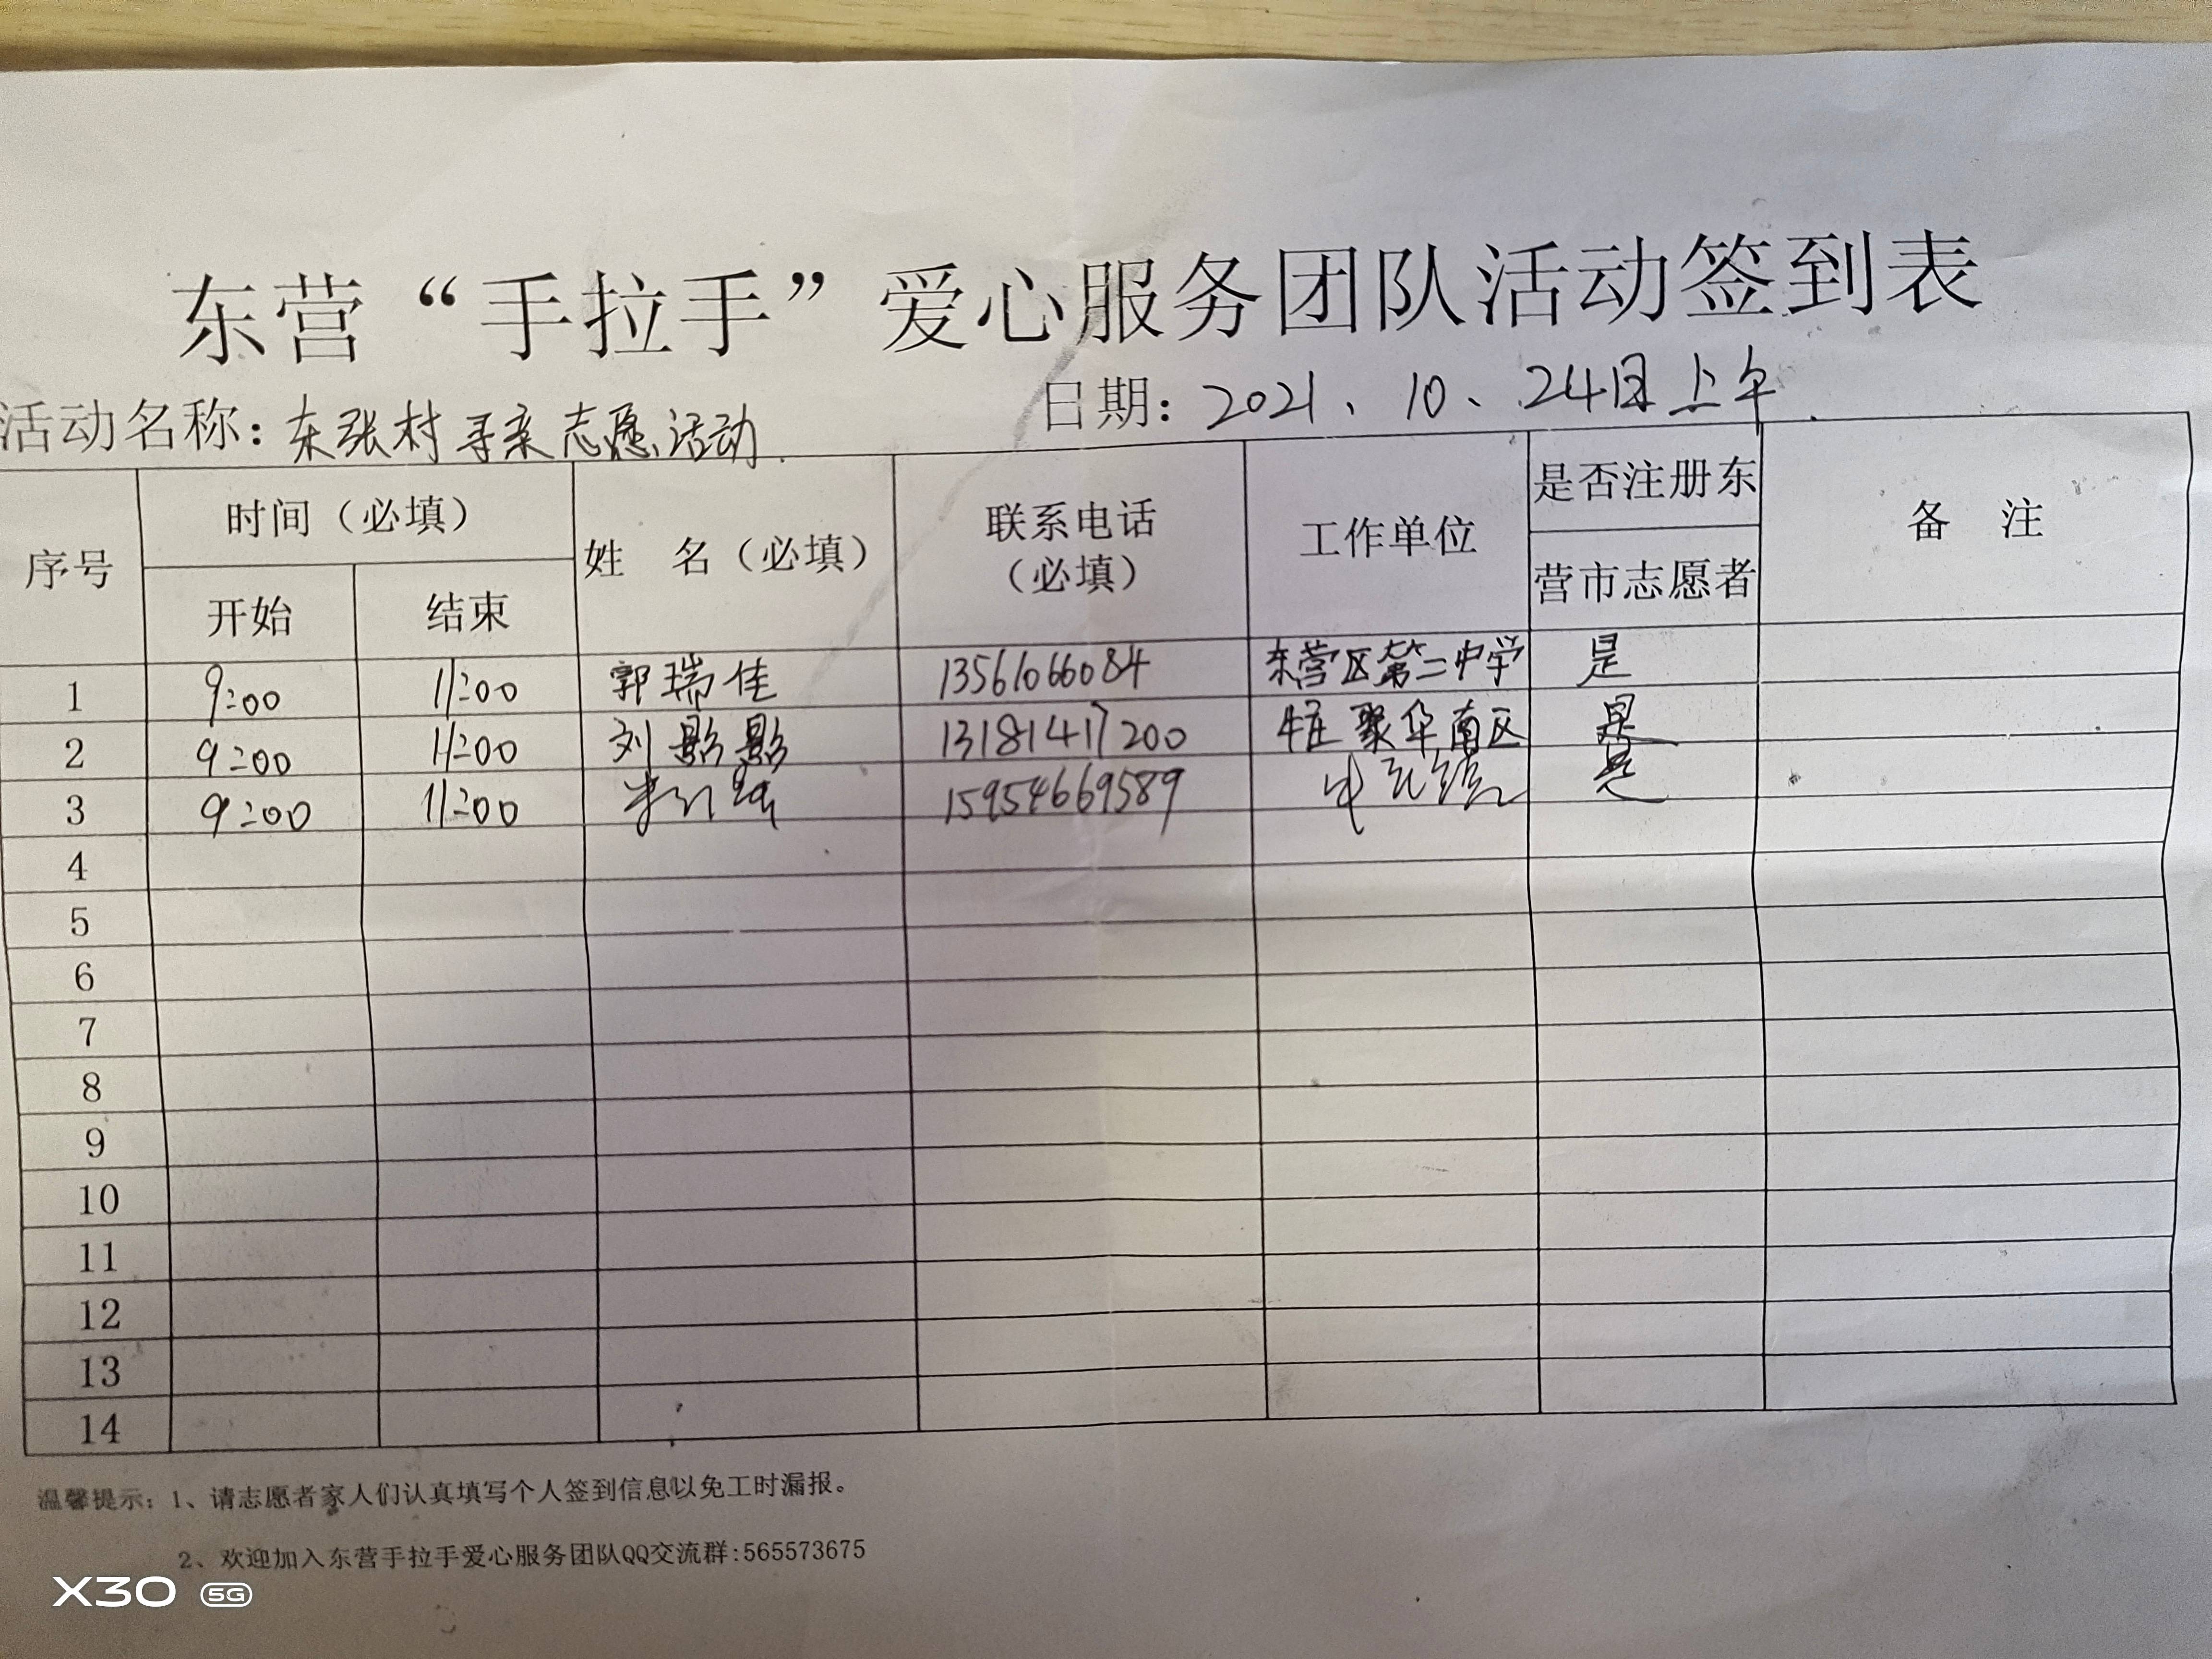 东营“手拉手”爱心服务团队活动签到表
活动名称：东张村寻亲志愿活动 日期：2021、10、24日上午
序号 时间（必填） 姓 名（必填） 联系电话（必填） 工作单位 是否注册东营市志愿者 备 注
开始 结束
1 9:00 11:00 郭瑞佳 13561066084 东营区第二中学 是
2 9:00 11:00 刘影影 13181417200 牛庄聚华南区 是
3 9:00 11:00 15954669589 是
4
5
6
7
8
9
10
11
12
13
14
温馨提示：1、请志愿者家人们认真填写个人签到信息以免工时漏报。
2、欢迎加入东营手拉手爱心服务团队QQ交流群:565573675
X30 5G